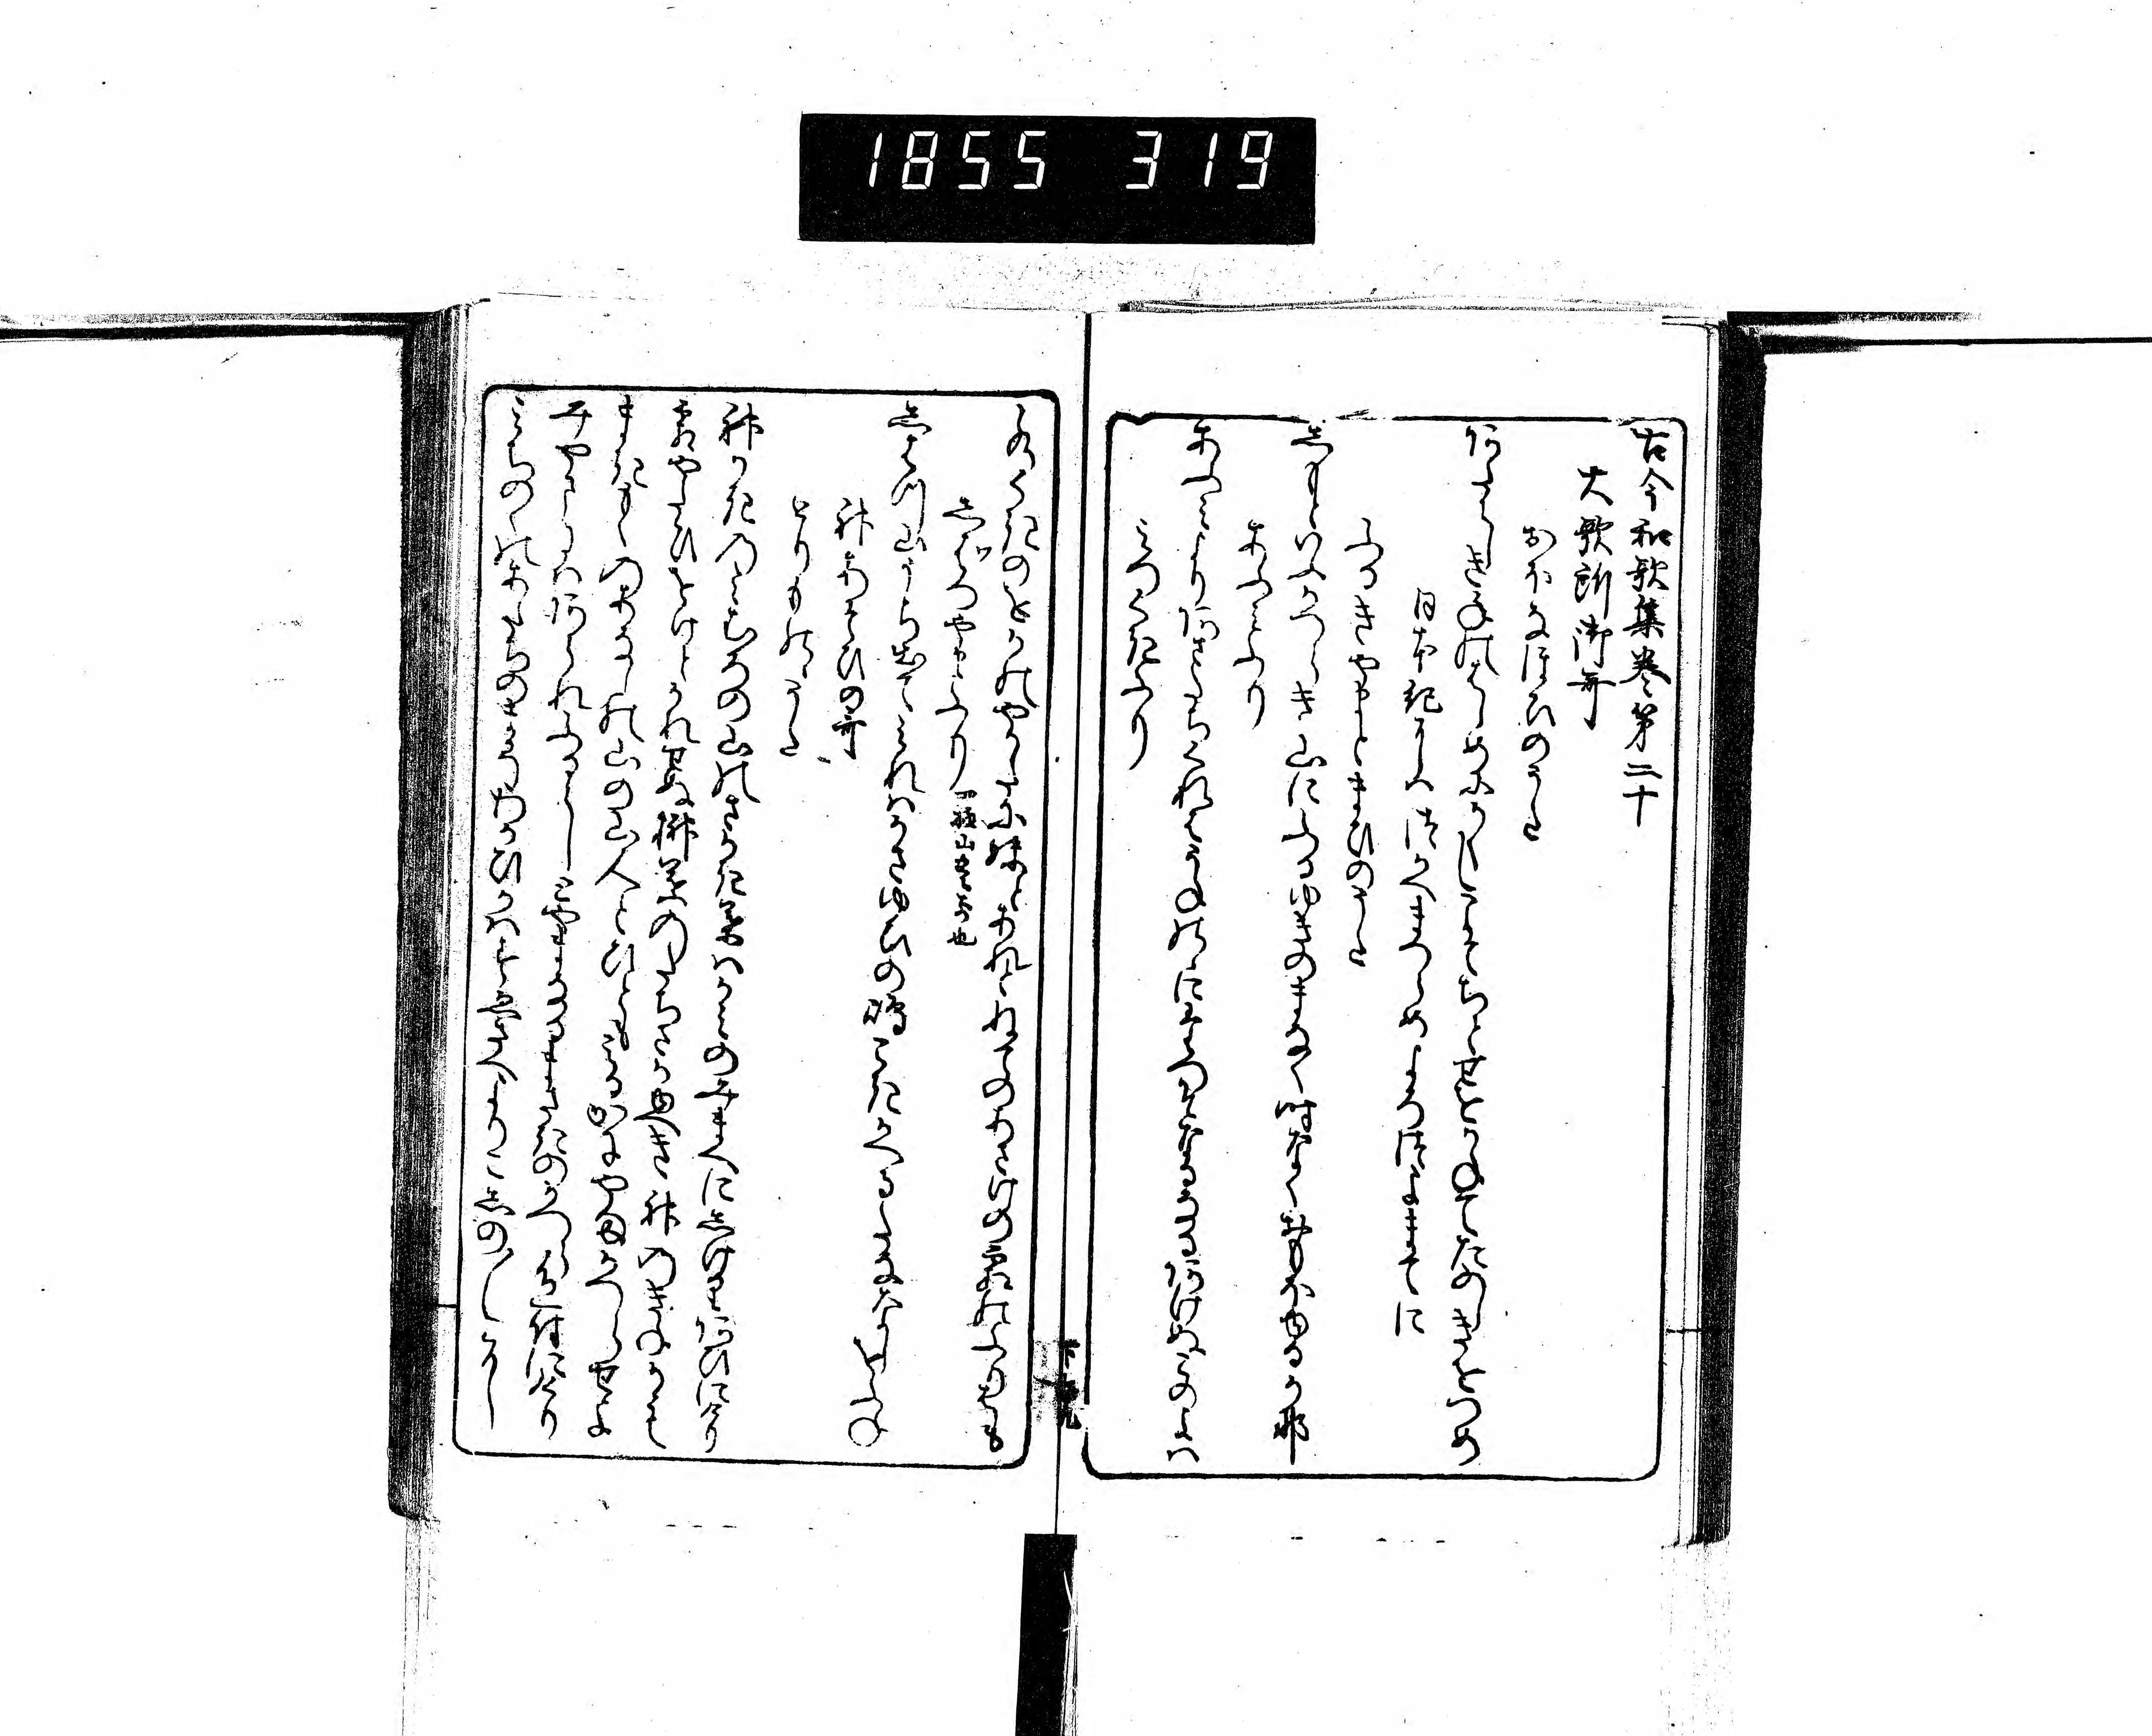 1855 319
古今和歌集巻第二十
大歌所御哥
おほなほひのうた
あたらしき年のはしめにかくしこそちとせをかねてたのしきをつめ
日本紀にはつかへまつらめよろつよまてに
ふるきやまとまひのうた
しもとゆふかつらき山にふる雪のまなく時なくおもほゆるかな
あふみふり
あふみよりあさたちくれはうねのにたつそなくなるあけぬこのよは
みつくきふり
水くきのをかのやかたにいもとあれとねてのあさけの霜のふりはも
しはつやまふり
しはつ山うち出てみれはかさゆひの嶋こきかくるたなゝしをふね
神あそひの哥
とりものゝうた
神かきのみむろの山のさかき葉は神のみまへにしけりあひにけり
霜やたひをけとかれせぬ榊葉のたちさかゆへき神のきねかも
まきもくのあなしの山の山人と人も見るかに山かつらせよ
み山にはあられふるらしと山なるまさきのかつら色つきにけり
みちのくのあたちのまゆみわかひかはすゑさへよりこしのひ〳〵に